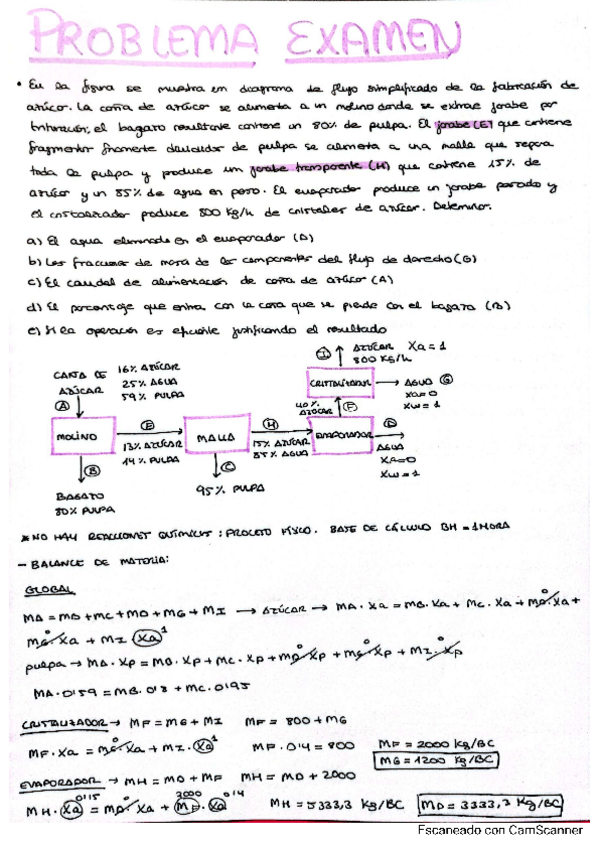 PROBLEMA EXAMEN
• En la figura se muestra em diagrama de flujo simplificado de la fabricación de
azúcar. La caña de azúcar se alimenta a un molino donde se extrae jarabe por
trituración, el bagazo resultante contiene un 80% de pulpa. El jarabe (E) que contiene
fragmentos finamente de pulpa se alimenta a una malla que separa
toda la pulpa y produce un jarabe transparente (H) que contiene 15% de
azúcar y un 85% de agua en peso. El evaporador produce un jarabe pesado y
el cristalizador produce 800 Kg/h de cristales de azúcar. Determinar.
a) El agua eliminada en el evaporador (D)
b) Las fracciones de masa de los componentes del flujo de derecho (G)
c) El caudal de alimentación de caña de azúcar (A)
d) El porcentaje que entra con la caña que se pierde con el bagazo (B)
e) Si la operación es eficiente justificando el resultado
CAÑA DE AZÚCAR
16% AZÚCAR
25% AGUA
59% PULPA
A
MOLINO
B
BAGAZO
80% PULPA
E
13% AZÚCAR
14% PULPA
MALLA
C
95% PULPA
H
15% AZÚCAR
85% AGUA
EVAPORADOR
D
AGUA
Xa=0
Xw=1
40% AZÚCAR
F
CRISTALIZADOR
I
AZÚCAR Xa=1
800 Kg/h
AGUA G
Xa=0
Xw=1
* NO HAY REACCIONES QUÍMICAS: PROCESO FÍSICO. BASE DE CÁLCULO BH = 1 HORA
- BALANCE DE MATERIA:
GLOBAL
MA = MB + MC + MD + MG + MI → AZÚCAR → MA · Xa = MB · Xa + MC · Xa + MD · Xa +
0
MG · Xa + MI · Xa
0 1
pulpa → MA · Xp = MB · Xp + MC · Xp + MD · Xp + MG · Xp + MI · Xp
0 0 0
MA · 0'59 = MB · 0'8 + MC · 0'95
CRISTALIZADOR → MF = MG + MI MF = 800 + MG
MF · Xa = MG · Xa + MI · Xa MF · 0'4 = 800 MF = 2000 Kg/BC
0 1
MG = 1200 Kg/BC
EVAPORADOR → MH = MD + MF MH = MD + 2000
MH · Xa = MD · Xa + MF · Xa MH = 5333,3 Kg/BC MD = 3333,3 Kg/BC
0'15 0 2000 0'4
Escaneado con CamScanner